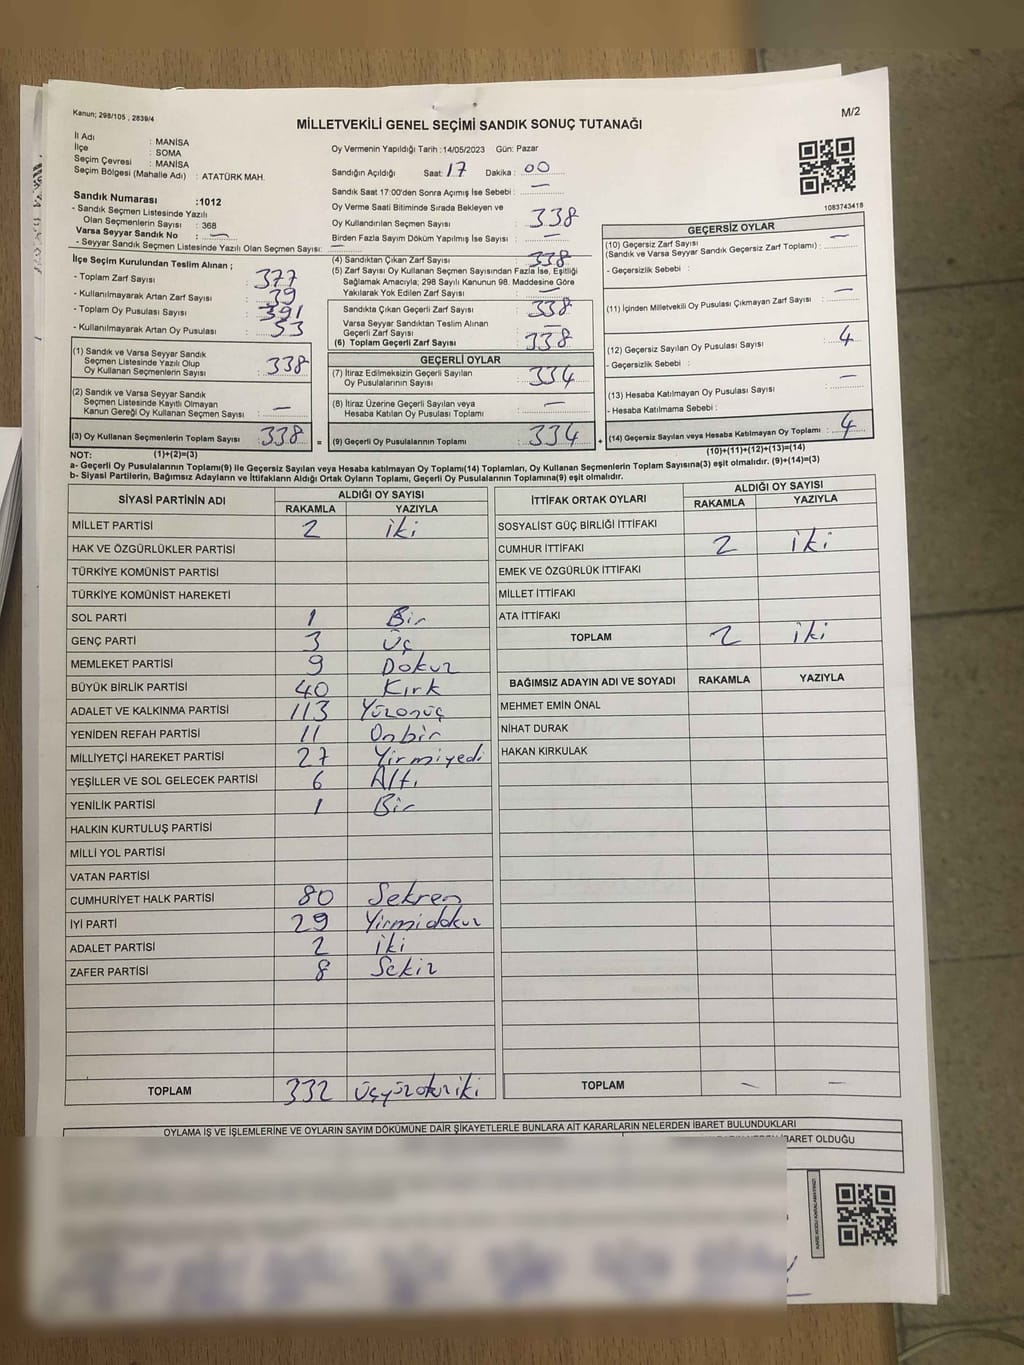 Kanun; 298/105 , 2839/4
M/2
MİLLETVEKİLİ GENEL SEÇİMİ SANDIK SONUÇ TUTANAĞI
İl Adı : MANİSA
İlçe : SOMA
Seçim Çevresi : MANİSA
Seçim Bölgesi (Mahalle Adı) : ATATÜRK MAH.
Oy Vermenin Yapıldığı Tarih :14/05/2023 Gün: Pazar
Sandığın Açıldığı Saat: 17 Dakika : 00
Sandık Saat 17:00'den Sonra Açımış İse Sebebi : —
Oy Verme Saati Bitiminde Sırada Bekleyen ve
Oy Kullandırılan Seçmen Sayısı : 338
Birden Fazla Sayım Döküm Yapılmış İse Sayısı : —
1083743418
Sandık Numarası :1012
- Sandık Seçmen Listesinde Yazılı
Olan Seçmenlerin Sayısı : 368
Varsa Seyyar Sandık No : —
- Seyyar Sandık Seçmen Listesinde Yazılı Olan Seçmen Sayısı: —
İlçe Seçim Kurulundan Teslim Alınan ;
- Toplam Zarf Sayısı : 377
- Kullanılmayarak Artan Zarf Sayısı : 39
- Toplam Oy Pusulası Sayısı : 391
- Kullanılmayarak Artan Oy Pusulası : 53
(1) Sandık ve Varsa Seyyar Sandık
Seçmen Listesinde Yazılı Olup
Oy Kullanan Seçmenlerin Sayısı : 338
(2) Sandık ve Varsa Seyyar Sandık
Seçmen Listesinde Kayıtlı Olmayan
Kanun Gereği Oy Kullanan Seçmen Sayısı : —
(3) Oy Kullanan Seçmenlerin Toplam Sayısı : 338 =
(4) Sandıktan Çıkan Zarf Sayısı : 338
(5) Zarf Sayısı Oy Kullanan Seçmen Sayısından Fazla İse, Eşitliği
Sağlamak Amacıyla; 298 Sayılı Kanunun 98. Maddesine Göre
Yakılarak Yok Edilen Zarf Sayısı : —
Sandıkta Çıkan Geçerli Zarf Sayısı : 338
Varsa Seyyar Sandıktan Teslim Alınan
Geçerli Zarf Sayısı : —
(6) Toplam Geçerli Zarf Sayısı : 338
GEÇERLİ OYLAR
(7) İtiraz Edilmeksizin Geçerli Sayılan
Oy Pusulalarının Sayısı : 334
(8) İtiraz Üzerine Geçerli Sayılan veya
Hesaba Katılan Oy Pusulası Toplamı : —
(9) Geçerli Oy Pusulalarının Toplamı : 334 +
GEÇERSİZ OYLAR
(10) Geçersiz Zarf Sayısı
(Sandık ve Varsa Seyyar Sandık Geçersiz Zarf Toplamı) : —
- Geçersizlik Sebebi :
(11) İçinden Milletvekili Oy Pusulası Çıkmayan Zarf Sayısı : —
(12) Geçersiz Sayılan Oy Pusulası Sayısı : 4
- Geçersizlik Sebebi :
(13) Hesaba Katılmayan Oy Pusulası Sayısı : —
- Hesaba Katılmama Sebebi :
(14) Geçersiz Sayılan veya Hesaba Katılmayan Oy Toplamı : 4
NOT: (1)+(2)=(3)
(10)+(11)+(12)+(13)=(14)
a- Geçerli Oy Pusulalarının Toplamı(9) ile Geçersiz Sayılan veya Hesaba katılmayan Oy Toplamı(14) Toplamları, Oy Kullanan Seçmenlerin Toplam Sayısına(3) eşit olmalıdır. (9)+(14)=(3)
b- Siyasi Partilerin, Bağımsız Adayların ve İttifakların Aldığı Ortak Oyların Toplamı, Geçerli Oy Pusulalarının Toplamına(9) eşit olmalıdır.
SİYASİ PARTİNİN ADI ALDIĞI OY SAYISI
RAKAMLA YAZIYLA
MİLLET PARTİSİ 2 iki
HAK VE ÖZGÜRLÜKLER PARTİSİ
TÜRKİYE KOMÜNİST PARTİSİ
TÜRKİYE KOMÜNİST HAREKETİ
SOL PARTİ 1 Bir
GENÇ PARTİ 3 Üç
MEMLEKET PARTİSİ 9 Dokuz
BÜYÜK BİRLİK PARTİSİ 40 Kırk
ADALET VE KALKINMA PARTİSİ 113 Yüzonüç
YENİDEN REFAH PARTİSİ 11 Onbir
MİLLİYETÇİ HAREKET PARTİSİ 27 Yirmiyedi
YEŞİLLER VE SOL GELECEK PARTİSİ 6 Altı
YENİLİK PARTİSİ 1 Bir
HALKIN KURTULUŞ PARTİSİ
MİLLİ YOL PARTİSİ
VATAN PARTİSİ
CUMHURİYET HALK PARTİSİ 80 Seksen
İYİ PARTİ 29 Yirmidokuz
ADALET PARTİSİ 2 iki
ZAFER PARTİSİ 8 Sekiz
TOPLAM 332 üçyüzotuziki
İTTİFAK ORTAK OYLARI ALDIĞI OY SAYISI
RAKAMLA YAZIYLA
SOSYALİST GÜÇ BİRLİĞİ İTTİFAKI
CUMHUR İTTİFAKI 2 iki
EMEK VE ÖZGÜRLÜK İTTİFAKI
MİLLET İTTİFAKI
ATA İTTİFAKI
TOPLAM 2 iki
BAĞIMSIZ ADAYIN ADI VE SOYADI RAKAMLA YAZIYLA
MEHMET EMİN ÖNAL
NİHAT DURAK
HAKAN KIRKULAK
TOPLAM — —
OYLAMA İŞ VE İŞLEMLERİNE VE OYLARIN SAYIM DÖKÜMÜNE DAİR ŞİKAYETLERLE BUNLARA AİT KARARLARIN NELERDEN İBARET BULUNDUKLARI
İBARET OLDUĞU